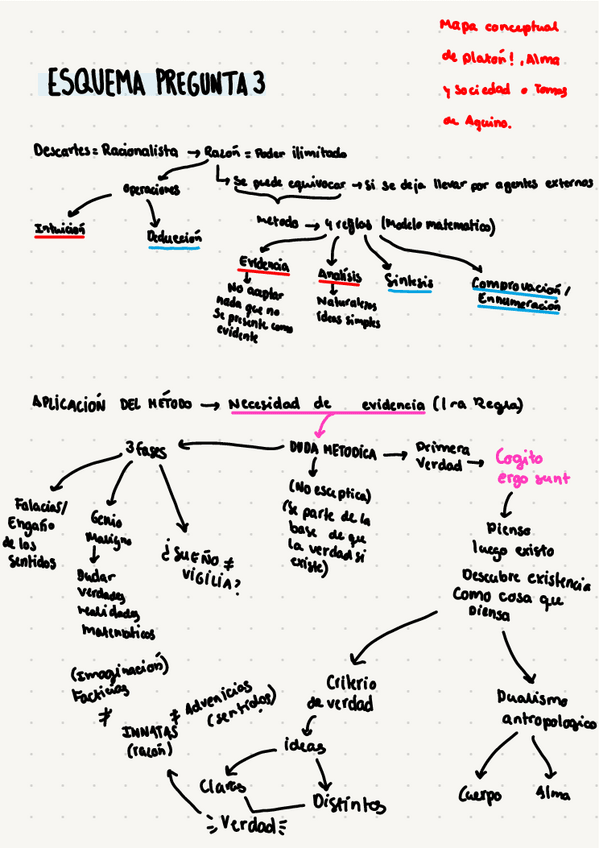 Mapa conceptual
de platón!, Alma
y sociedad o Tomas
de Aquino.
ESQUEMA PREGUNTA 3
Descartes = Racionalista → Razón = Poder ilimitado
Operaciones
↳ Se puede equivocar → si se deja llevar por agentes externos
Intuición
Deducción
Método → 4 reglas (Modelo matematico)
Evidencia
Análisis
Síntesis
Comprovación/
Ennumeración
No aceptar
nada que no
se presente como
evidente
Naturalezas
ideas simples
APLICACIÓN DEL MÉTODO → Necesidad de evidencia (1ra Regla)
3 fases
DUDA METODICA → Primera
Verdad →
Cogito
ergo sunt
Falacias/
Engaño
de los
sentidos
Genio
Maligno
Dudar
verdades
realidades
matematicas
¿SUEÑO ≠
VIGILIA?
(No esceptica)
(Se parte de la
base de que
la verdad si
existe)
Pienso
luego existo
Descubre existencia
Como cosa que
piensa
(Imaginación)
Facticias
≠
INNATAS
(razón)
≠ Advenicias
(sentidos)
Criterio
de verdad
ideas
Claras
Distintos
Verdad
Dualismo
antropologico
Cuerpo
Alma